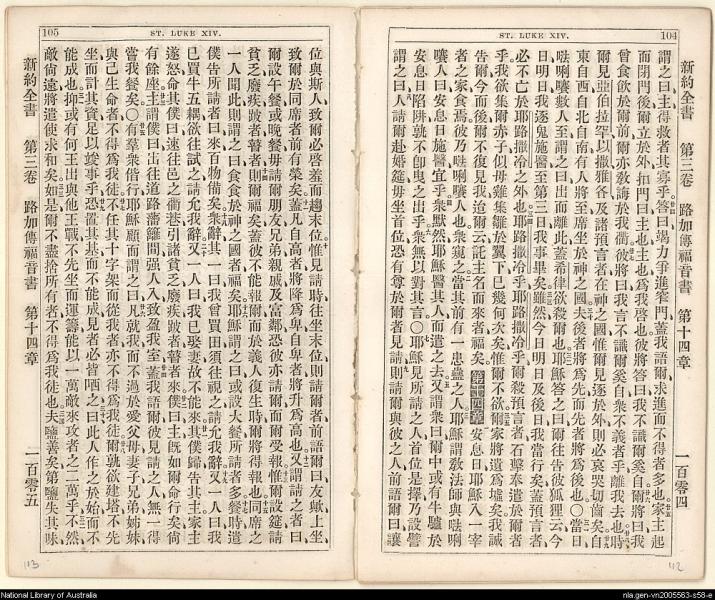 104
ST. LUKE XIV.
新約全書 第三卷 路加傳福音書 第十四章 一百零四
謂之曰主得救者其寡乎答曰竭力爭進窄門蓋我語爾求進而不得者多也家主起
而閉門後爾立於外扣門曰主也主也爲我啓也彼將答曰我不識爾奚自爾將曰我
曾食飲於爾前爾亦敎誨於我衢彼將曰我言不識爾奚自衆不義者乎離我去也時
爾見亞伯拉罕以撒雅各及諸預言者在神之國惟爾見逐於外則必哀哭切齒矣自
東自西自北自南有人將至席坐於神之國夫後者將爲先而先者將爲後也〇當日
𠵽唎㘔數人至謂之曰出而離此蓋希律欲殺爾也耶穌答之曰爾往告彼狐狸云今
日明日我逐鬼施醫至第三日我事畢矣雖然今日明日及後日我當行矣蓋預言者
必不亡於耶路撒冷之外也耶路撒冷乎耶路撒冷乎爾殺預言者石擊奉遣於爾者
乎我欲集爾赤子似母雞集雛於翼下已幾何次矣惟爾不欲爾家將遺爲墟矣我誠
告爾今而後爾不復見我迨爾云託主名而來者福矣 第十四章 安息日耶穌入一宰
者之家食焉彼乃𠵽唎㘔人也衆窺之當其前有一患蠱之人耶穌謂敎法師與𠵽唎
㘔人曰安息日施醫宜乎衆默然耶穌醫其人而遣之去又謂衆曰爾中或有牛驢於
安息日陷阱孰不卽曳之出乎衆無以對其言〇耶穌見所請之人首位是擇乃設譬
謂之曰人請爾赴婚筵毋坐首位恐有尊於爾者見請則請爾與彼之人前語爾曰讓
105
ST. LUKE XIV.
位與斯人致爾必啓羞而趨末位惟見請時往坐末位則請爾者前語爾曰友上坐
致爾於同席者前有榮矣蓋凡自高者將降爲卑自卑者將升爲高也又謂請之者曰
爾設午餐或晚餐毋請爾朋友兄弟親戚及富鄰恐彼亦請爾而爾受報惟爾設筵請
貧乏廢疾跛者瞽者則爾福矣蓋彼不能報爾而於義人復生時爾將得報也同席之
一人聞此則謂之曰食食於神之國者福矣耶穌謂之曰或設大餐所請者多餐時遣
僕告所請者曰來百物備矣衆辭其一曰我曾買田須往視之請允我辭又一人曰我
已買牛五耦欲往試之請允我辭又一人曰我已娶妻故不能來其僕歸告其主家主
遂怒命其僕曰速往邑之衢巷引諸貧乏廢疾跛者瞽者來僕曰主旣如爾命行矣尙
有餘座主謂僕曰出往道路藩籬間强人入致盈我室蓋我語爾彼見請之人無一得
嘗我餐矣〇有羣衆偕行耶穌顧而謂之曰凡就我而不過於愛父母妻子兄弟姊妹
與己生命者不得爲我徒不任其十字架而從我者亦不得爲我徒爾孰欲建塔不先
坐而計其資足以竣事乎恐置其基而不能成見者必皆哂之曰此人作之於始而不
能成也抑或有何王出與他王戰不先坐而運籌能以一萬敵來攻者之二萬乎不然
敵尙遠將遣使求和矣如是爾不盡捨所有者不得爲我徒也夫鹽善矣第鹽失其味
新約全書 第三卷 路加傳福音書 第十四章 一百零五
113
112
National Library of Australia
nla.gen-vn2005563-s58-e